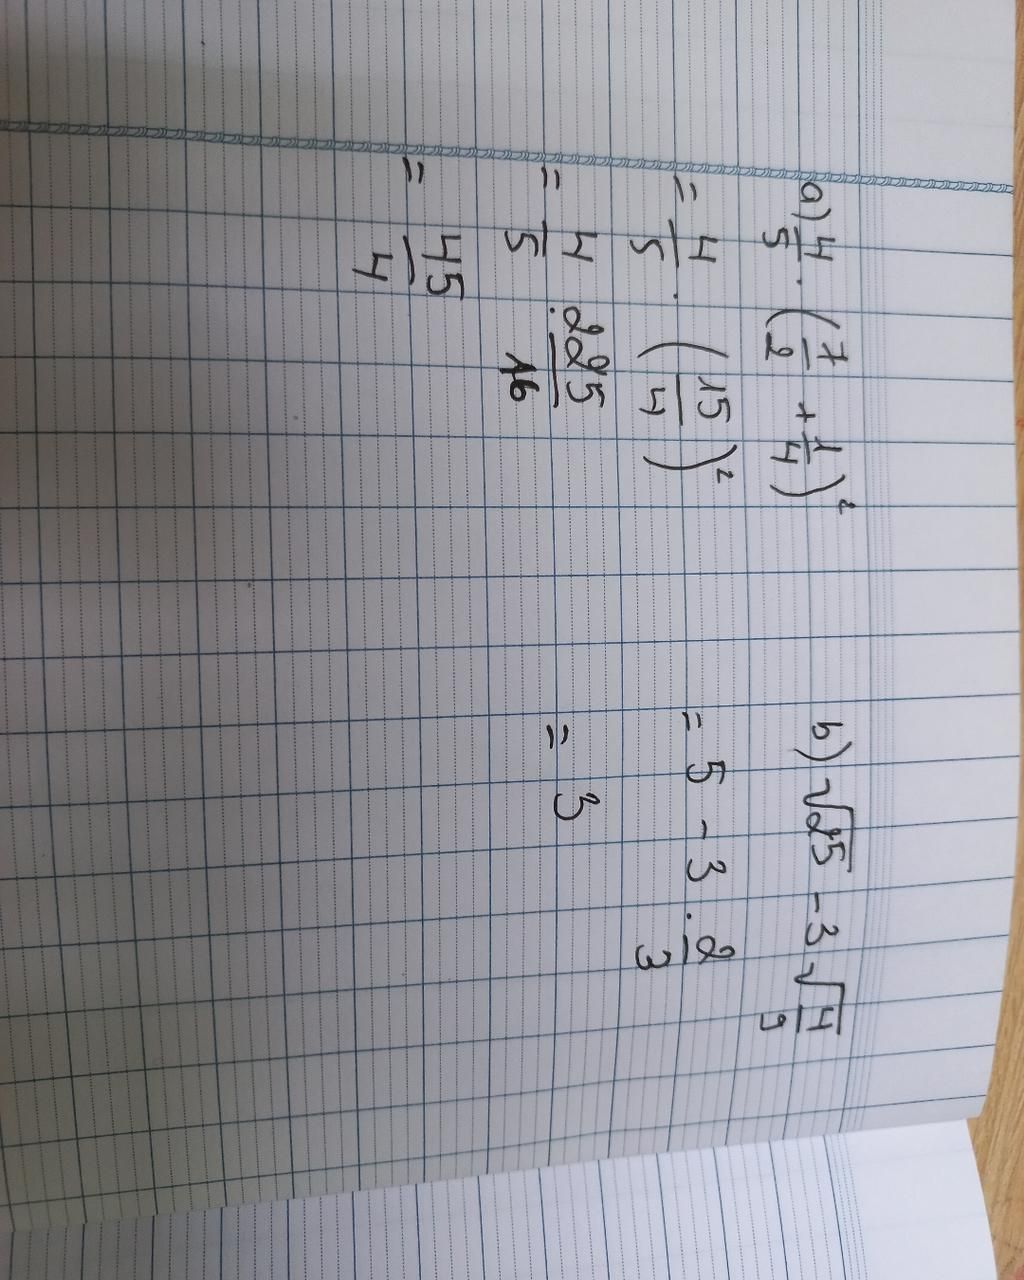 a) 4/5 . (7/2 + 1/4)²
= 4/5 . (15/4)²
= 4/5 . 225/16
= 45/4
b) √25 - 3√(4/9)
= 5 - 3 . 2/3
= 3